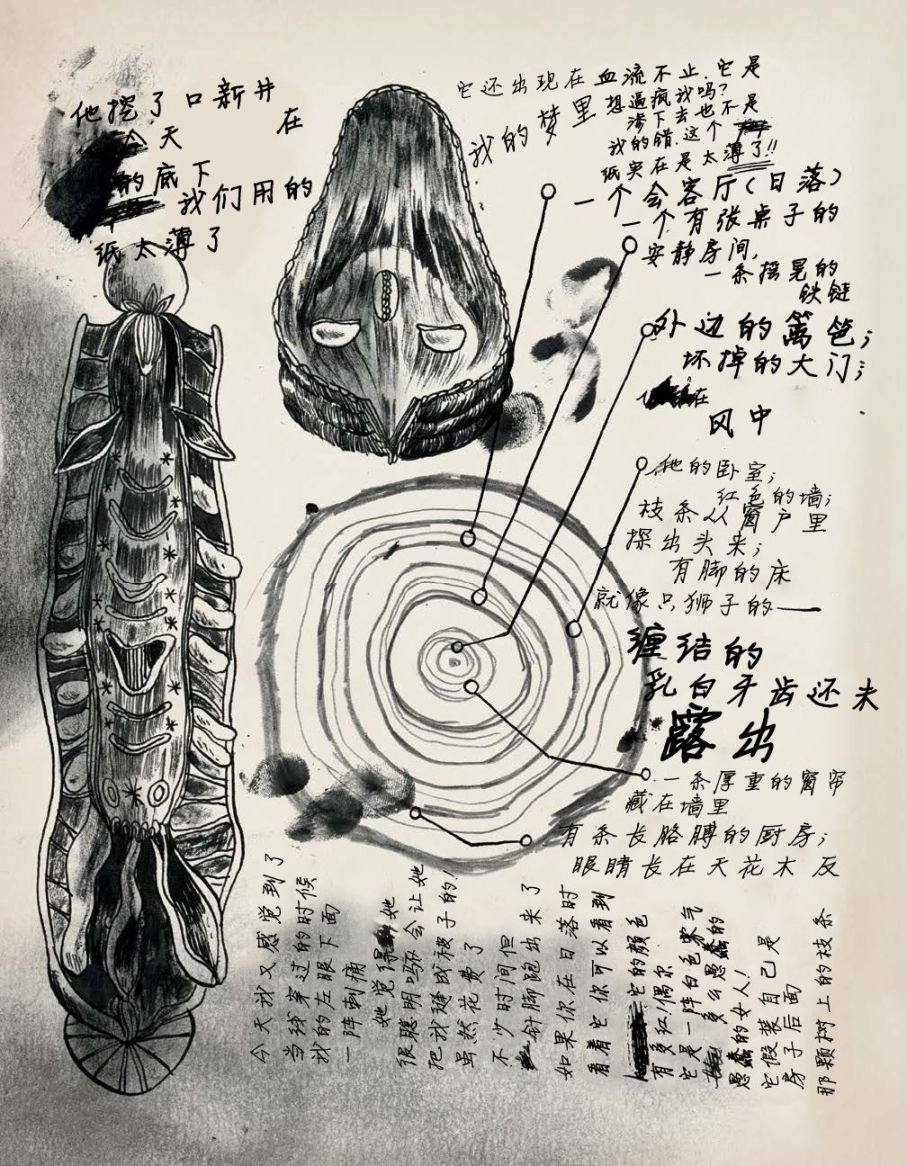 他挖了口新井
今天 在
的底下
我们用的
纸太薄了
它还出现在
我的梦里
血流不止.它是
想逼疯我吗?
渗下去也不是
我的错.这个
纸实在是太薄了!!
一个会客厅(日落)
一个有张桌子的
安静房间,
一条摇晃的
铁链
外边的篱笆;
坏掉的大门;
在
风中
他的卧室;
红色的墙;
枝条从窗户里
探出头来;
有脚的床
就像只狮子的——
缠结的
乳白牙齿还未
露出
一条厚重的窗帘
藏在墙里
有条长胳膊的厨房;
眼睛长在天花木反
今天我又感觉到了
当线穿过的时候
我的左眼下面
一阵刺痛
她觉得她
很聪明吗?会让她
把我缝成被子的!
虽然花费了
不少时间但
针脚跑出来了
如果你在日落时
看着它你可以看到
它的颜色
有更红!偶尔
它是一阵白色雾气
多么愚蠢的
愚蠢的女人!
它假装自己是
房子后面
那颗树上的枝条